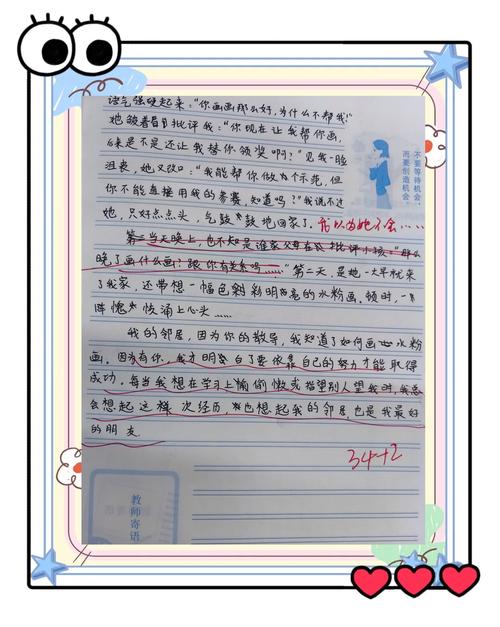 语气强硬起来:“你画画那么好,为什么不帮我!”
她皱着眉批评我:“你现在让我帮你画,
来是不是还让我替你领奖啊?”见我一脸
沮丧,她又改口:“我能帮你做个示范,但
你不能直接用我的参赛,知道吗?”我说不过
她,只好点点头,气鼓鼓地回家了。我以为她不会……
当天晚上,也不知是谁家父母在批评小孩:“那么
晚了画什么画?跟你有关系吗……”第二天,是她一大早就来
了我家,还带想一幅色彩明亮的水粉画。顿时,一
阵愧疚涌上心头……
我的邻居,因为你的教导,我知道了如何画水粉
画。因为有你,我才明白了要依靠自己的努力才能取得
成功。每当我想在学习上偷懒或指望别人望我时,我总
会想起这样次经历,也想起我的邻居,也是我最好
的朋友
34+2
不要等待机会,
而要创造机会。
教师寄语